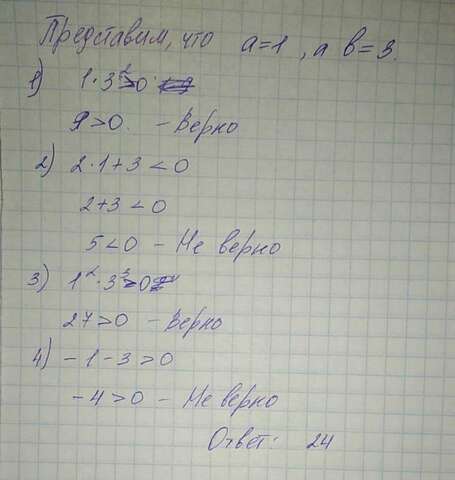 Представим, что a=1, а b=3.
1) 1·3²>0
9>0. – Верно
2) 2·1+3<0
2+3<0
5<0 – Не верно
3) 1²·3³>0
27>0 – Верно
4) –1–3>0
–4>0 – Не верно
Ответ: 24